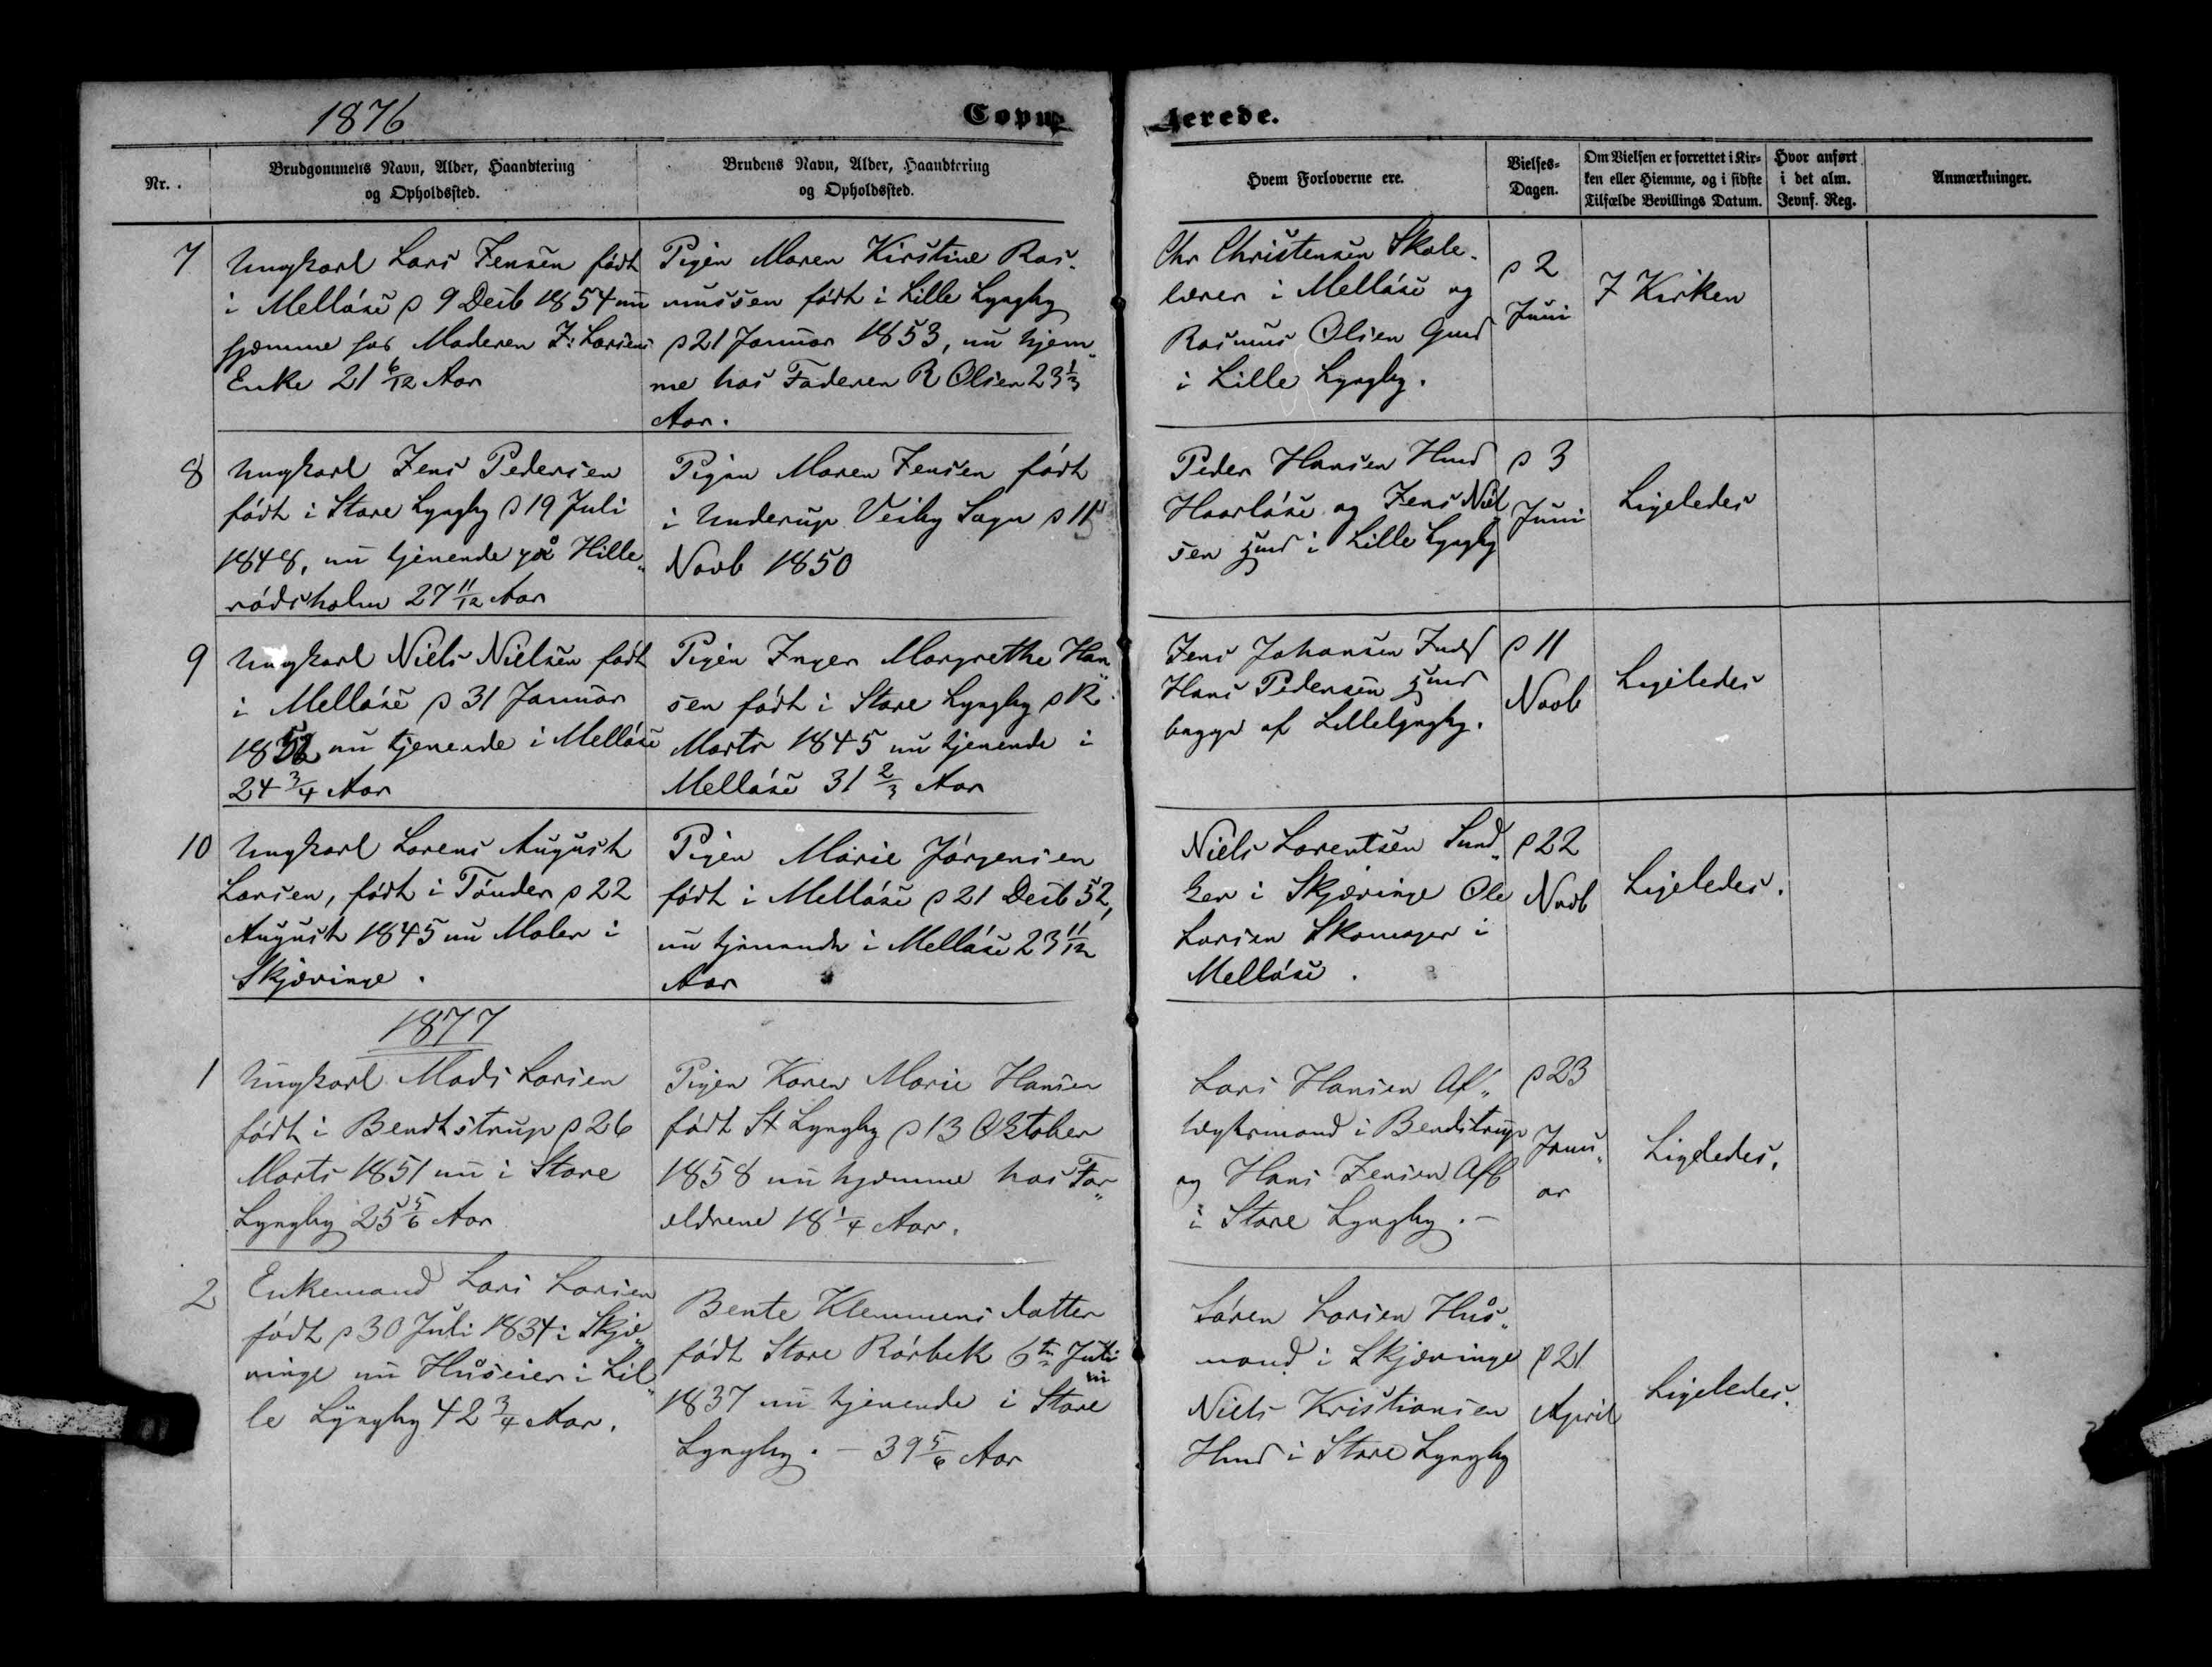 1876
Copu
lerede.
Nr.
Brudgommens Navn, Alder, Haandtering
og Opholdssted.
Brudens Navn, Alder, Haandtering
og Opholdssted.
Hvem Forloverne ere.
Vielses-
Dagen.
Om Vielsen er forrettet i Kir-
ken eller Hiemme, og i sidste
Tilfælde Bevillings Datum.
Hvor anført
i det alm.
Jevnf. Reg.
Anmærkninger.
7
Ungkarl Lars Jensen født
i Melløse d 9 Decb 1854 nu
hjemme hos Moderen J: Larsens
Enke 21 6/12 Aar
Pigen Maren Kirstine Ras-
mussen født i Lille Lyngby
d 21 Januar 1853, nu hjem-
me hos Faderen R Olsen 23 1/3
Aar.
Chr Christensen Skole-
lærer i Melløse og
Rasmus Olsen Gmd
i Lille Lyngby.
d 2
Juni
I Kirken
8
Ungkarl Jens Pedersen
født i Store Lyngby d 19 Juli
1848, nu tjenende på Hille-
rødsholm 27 11/12 Aar
Pigen Maren Jensen født
i Underup Veiby Sogn d 11
Novb 1850
Peder Hansen Hmd
Haarløse og Jens Niel
sen Gmd i Lille Lyngby
d 3
Juni
Ligeledes
9
Ungkarl Niels Nielsen født
i Melløse d 31 Januar
1852 nu tjenende i Melløse
24 3/4 Aar
Pigen Inger Margrethe Han-
sen født i Store Lyngby d
Marts 1845 nu tjenende i
Melløse 31 2/3 Aar
Jens Johansen Inds
Hans Pedersen Gmd
begge af Lillelyngby.
d 11
Novb
Ligeledes
10
Ungkarl Lorens August
Larsen, født i Tønder d 22
August 1845 nu Maler i
Skjævinge.
Pigen Marie Jørgensen
født i Melløse d 21 Decb 52,
nu tjenende i Melløse 23 11/12
Aar
Niels Lorentsen Sned-
ker i Skjævinge Ole
Larsen Skomager i
Melløse.
d 22
Novb
Ligeledes.
1877
1
Ungkarl Mads Larsen
født i Bendtstrup d 26
Marts 1851 nu i Store
Lyngby 25 5/6 Aar
Pigen Karen Marie Hansen
født St Lyngby d 13 Oktober
1858 nu hjemme hos For-
ældrene 18 1/4 Aar.
Lars Hansen Af-
tægtsmand i Bendstrup
og Hans Jensen Aft
i Store Lyngby. -
d 23
Janu-
ar
Ligeledes.
2
Enkemand Lars Larsen
født d 30 Juli 1834 i Skjæ-
vinge nu Huseier i Lil-
le Lyngby 42 3/4 Aar.
Bente Klemmensdatter
født Store Rørbek 6te Juli
1837 nu tjenende i Store
Lyngby. - 39 5/6 Aar
Søren Larsen Hus-
mand i Skjævinge
Niels Kristiansen
Hmd i Store Lyngby
d 21
April
Ligeledes.